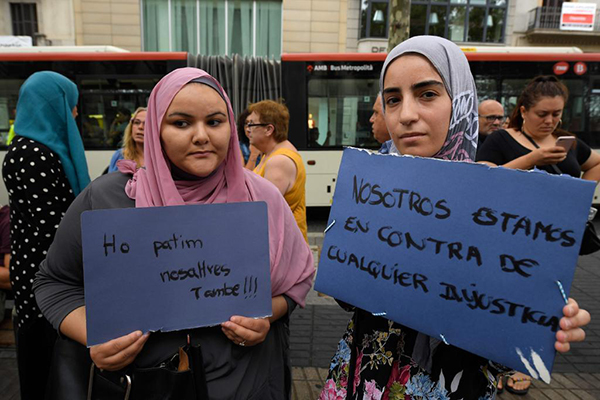 AMB Bus Metropolità
Ho patim
nosaltres
També!!!
NOSOTROS ESTAMOS
EN CONTRA DE
CUALQUIER INJUSTICIA